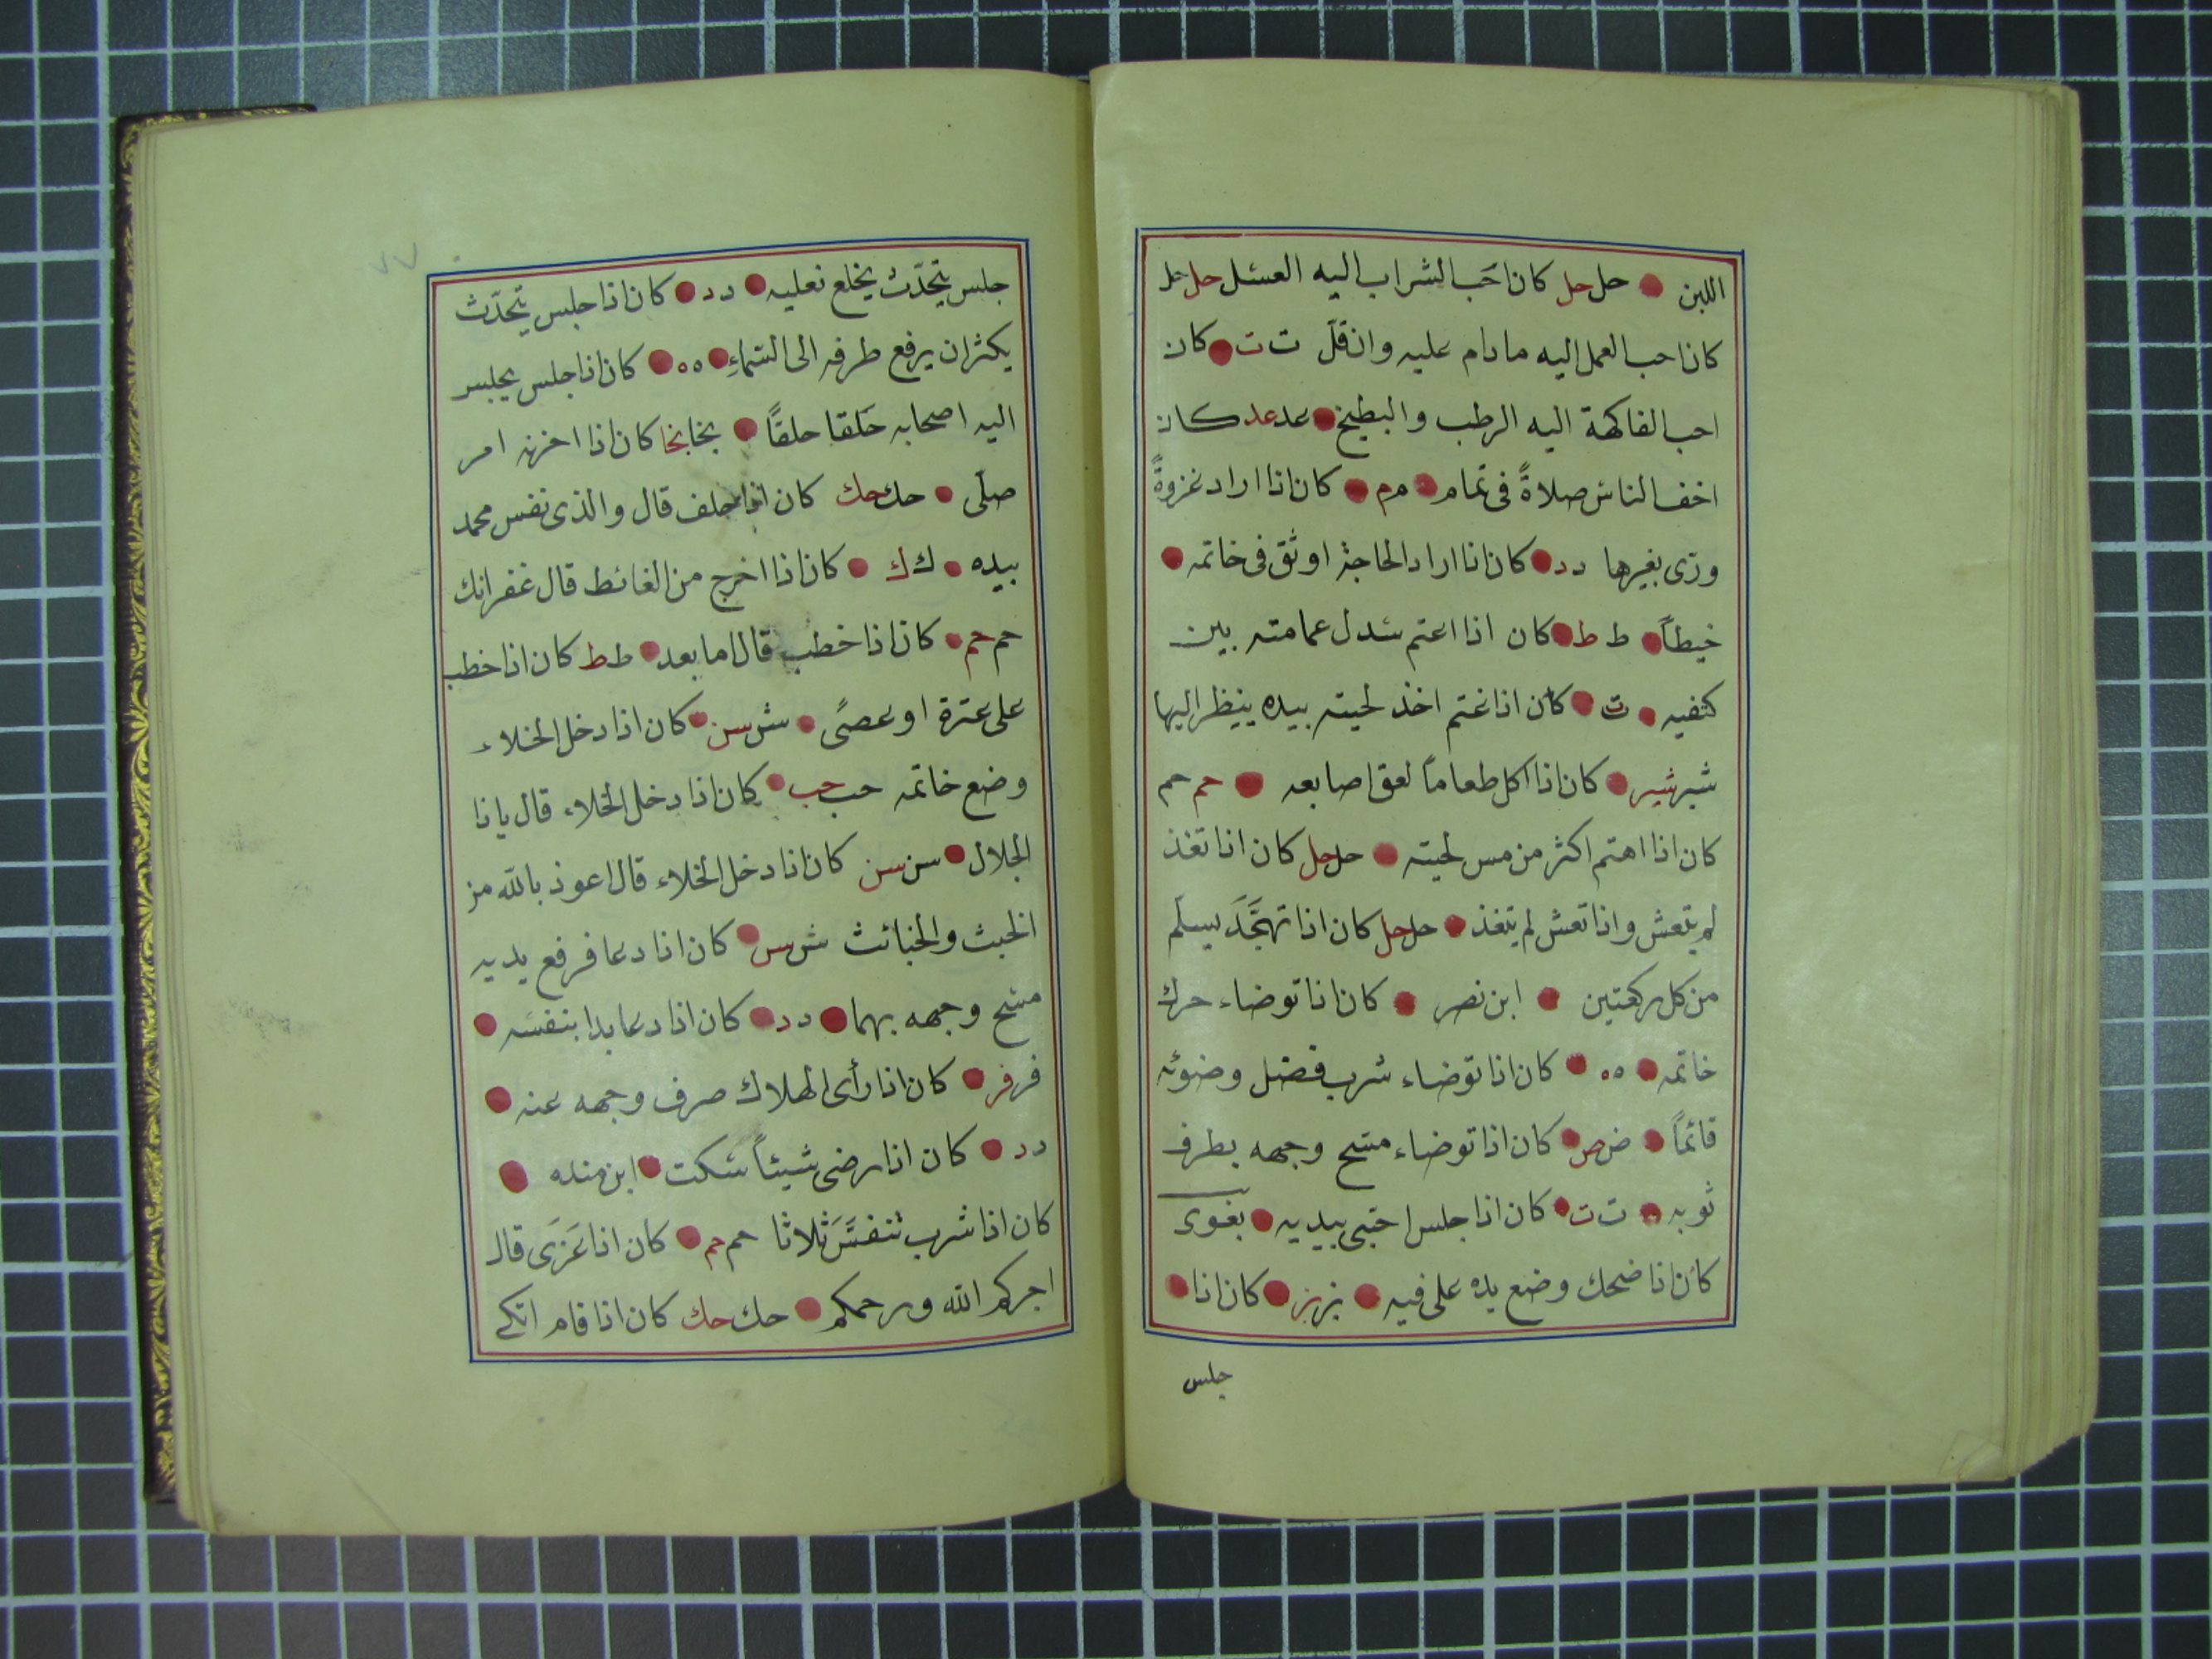 اللبن ● حل حل كان احب الشراب اليه العسل حل حل
كان احب العمل اليه ما دام عليه وان قلّ ت ت ● كان
احب الفاكهة اليه الرطب والبطيخ ● عد عد كان
اخف الناس صلاةً فى تمام ● م م ● كان اذا اراد غزوةً
ورّى بغيرها د د ● كان اذا اراد الحاجة اوثق فى خاتمه ●
خيطاً ● ط ط ● كان اذا اعتم سدل عمامته بين
كتفيه ● ت ● كان اذا غتم اخذ لحيته بيده ينيظر اليها
شير شير ● كان اذا اكل طعاماً لعق اصابعه ● حم حم
كان اذا اهتم اكثر من مس لحيته ● حل حل كان اذا تغذ
لم يتعش واذا تعش لم يتغذ ● حل حل كان اذا تهجّد يسلّم
من كل ركعتين ● ابن نصر ● كان اذا توضاء حرك
خاتمه ● ه ه ● كان اذا توضاء شرب فضل وضوئه
قائماً ● ض ص ● كان اذا توضاء مسح وجهه بطرف
ثوبه ● ت ت ● كان اذا جلس احتبى بيديه ● بغوى
كان اذا ضحك وضع يده على فيه ● بز بز ● كان اذا ●
جلس
جلس يتحدّث يخلع نعليه ● د د ● كان اذا جلس يتحدّث
يكثر ان يرفع طرفه الى السماءِ ● ه ه ● كان اذا جلس يجلس
اليه اصحابه حَلقا حلقاً ● بخا بخا كان اذا اخزنه امر
صلّى ● حك حك كان اذا حلف قال والذى نفس محمد
بيده ● ك ك ● كان اذا اخرج من الغائط قال غفرانك
حم حم ● كان اذا خطب قال اما بعد ● ط ط كان اذا خطب
على عترة او عصًى ● ش سن ● كان اذا دخل الخلاء
وضع خاتمه حب حب ● كان اذا دخل الخلاء قال يا ذا
الجلال ● سن سن كان اذا دخل الخلاء قال اعوذ بالله من
الخبث والخبائث ش س ● كان اذا دعا فرفع يديه
مسح وجهه بهما ● د د ● كان اذا دعا بدا بنفسه ●
فر فر ● كان اذا رأى الهلاك صرف وجهه عنه ●
د د ● كان اذا رضى شيئاً سكت ● ابن منده ●
كان اذا شرب تنفسَّ ثلاثا حم حم ● كان اذا عَزَى قال
اجركم الله ورحمكم ● حك حك كان اذا قام اتكى